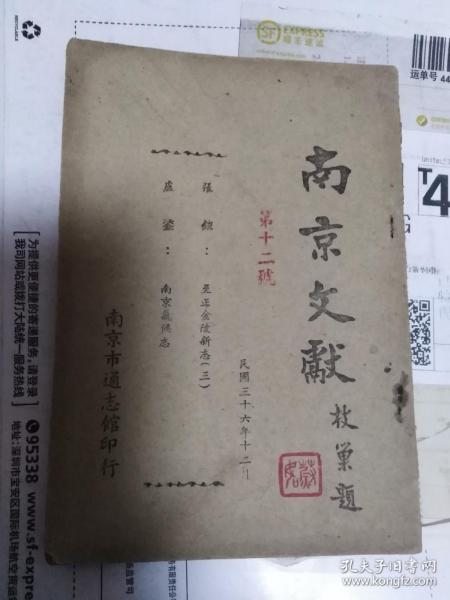 南京文獻
枝巢題
第十二號
民國三十六年十二月
張鉉：至正金陵新志(三)
盧鋈：南京氣候志
南京市通志館印行
SF EXPRESS
运单号 44
T4
为提供更便捷的寄递服务，请登录
我司网站或拨打大陆统一服务热线
95338 www.sf-expre
地址：深圳市宝安区国际机场航空货运
孔夫子旧书网
kongfz.com